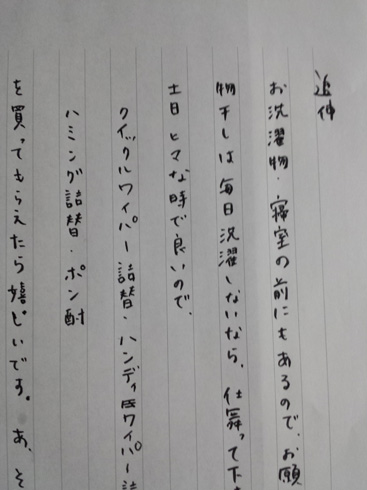 追伸
お洗濯物、寝室の前にもあるので、お願
物干しは毎日洗濯しないなら、仕舞って下
土日ヒマな時で良いので、
クイックルワイパー詰替・ハンディワイパー詰
ハミング詰替・ポン酢
を買ってもらえたら嬉しいです。あ、そ